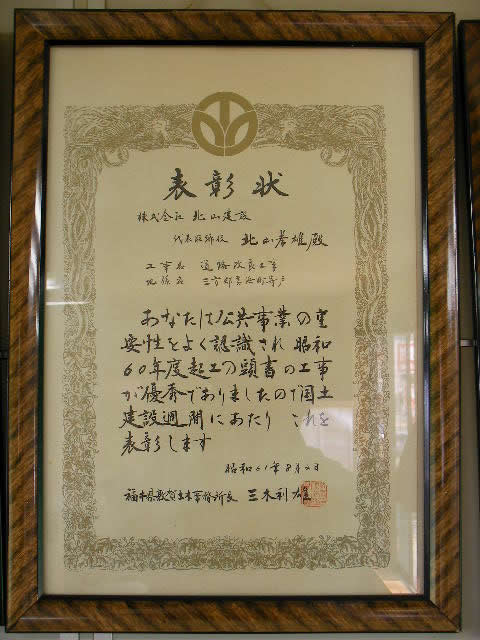 表彰状
株式会社 北山建設
代表取締役 北山孝雄殿
工事名 道路改良工事
地係名 三方郡美浜町寄戸
あなたは公共事業の重
要性をよく認識され 昭和
60年度起工の頭書の工事
が優秀でありましたので国土
建設週間にあたり これを
表彰します
昭和61年8月2日
福井県敦賀土木事務所長 三木利雄